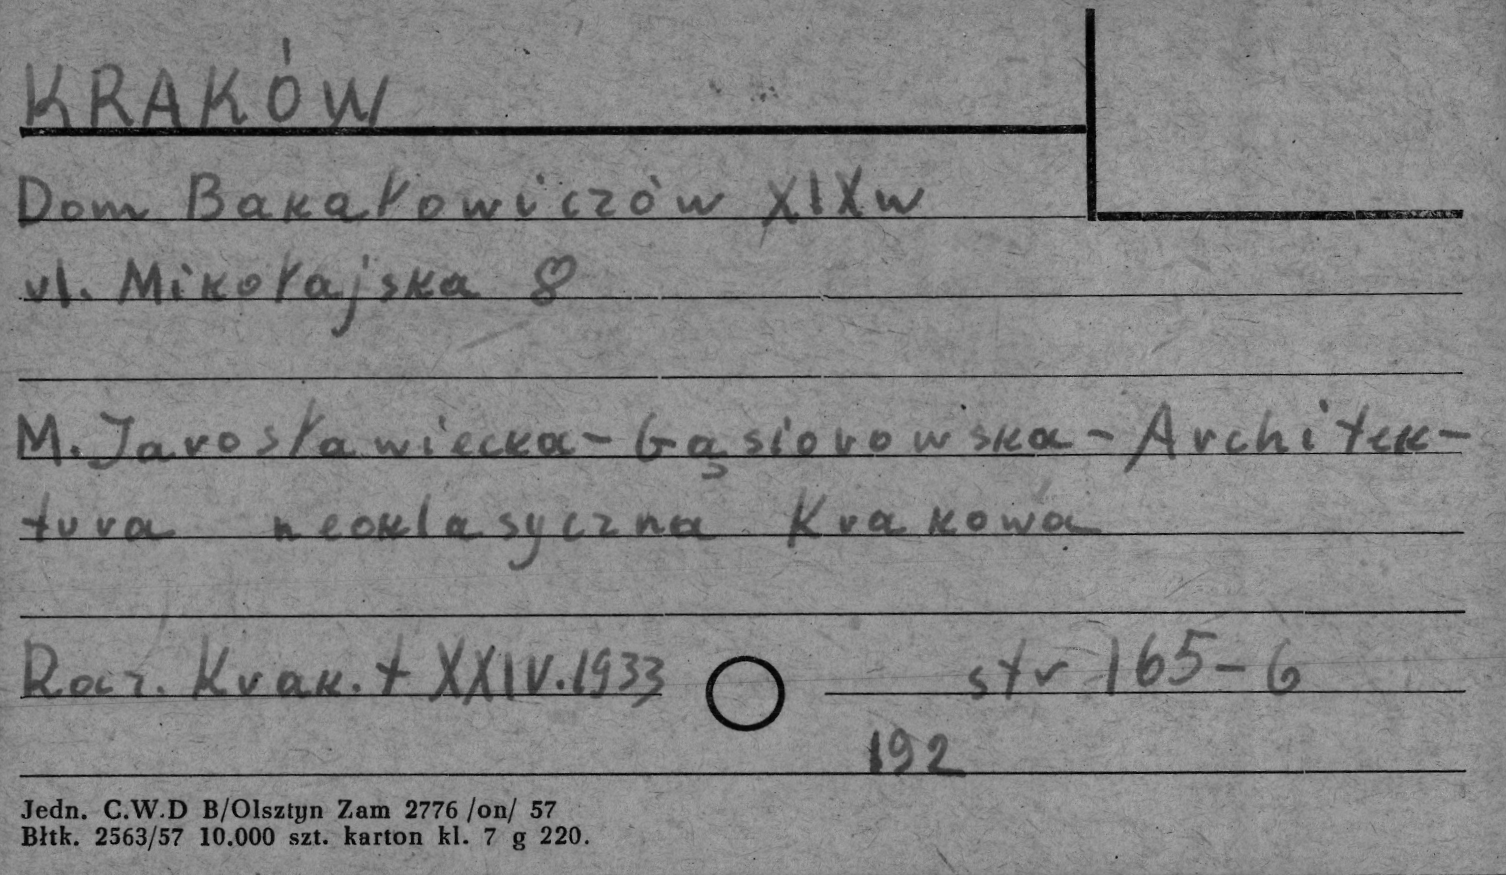 KRAKÓW
Dom Bakałowiczów XIXw
ul. Mikołajska 8
M. Jarosławiecka-Gąsiorowska - Architek-
tura neoklasyczna Krakowa
Rocz. Krak. t XXIV. 1933 str 165-6
192
Jedn. C.W.D B/Olsztyn Zam 2776 /on/ 57
Błtk. 2563/57 10.000 szt. karton kl. 7 g 220.